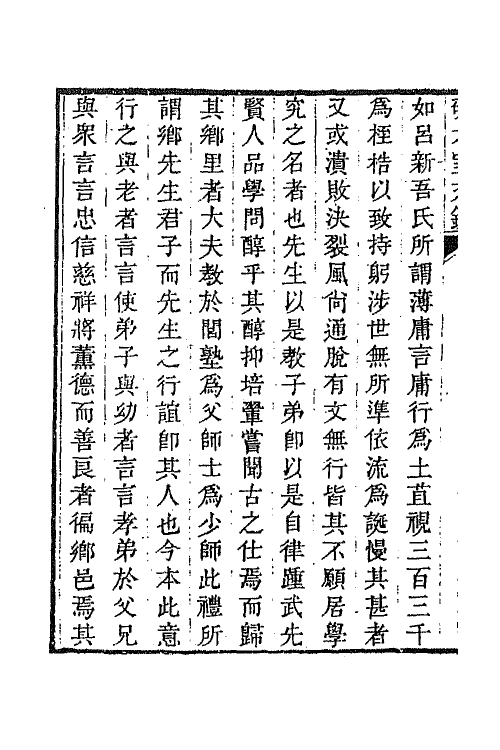 如呂新吾氏所謂薄庸言庸行爲土苴視三百三千
爲桎梏以致持躬涉世無所準依流爲誕慢其甚者
又或潰敗決裂風尙通脫有文無行皆其不願居學
究之名者也先生以是敎子弟卽以是自律踵武先
賢人品學問醇乎其醇抑培罿嘗聞古之仕焉而歸
其鄉里者大夫敎於閭塾爲父師士爲少師此禮所
謂鄉先生君子而先生之行誼卽其人也今本此意
行之與老者言言使弟子與幼者言言孝弟於父兄
與衆言言忠信慈祥將薰德而善良者徧鄉邑焉其